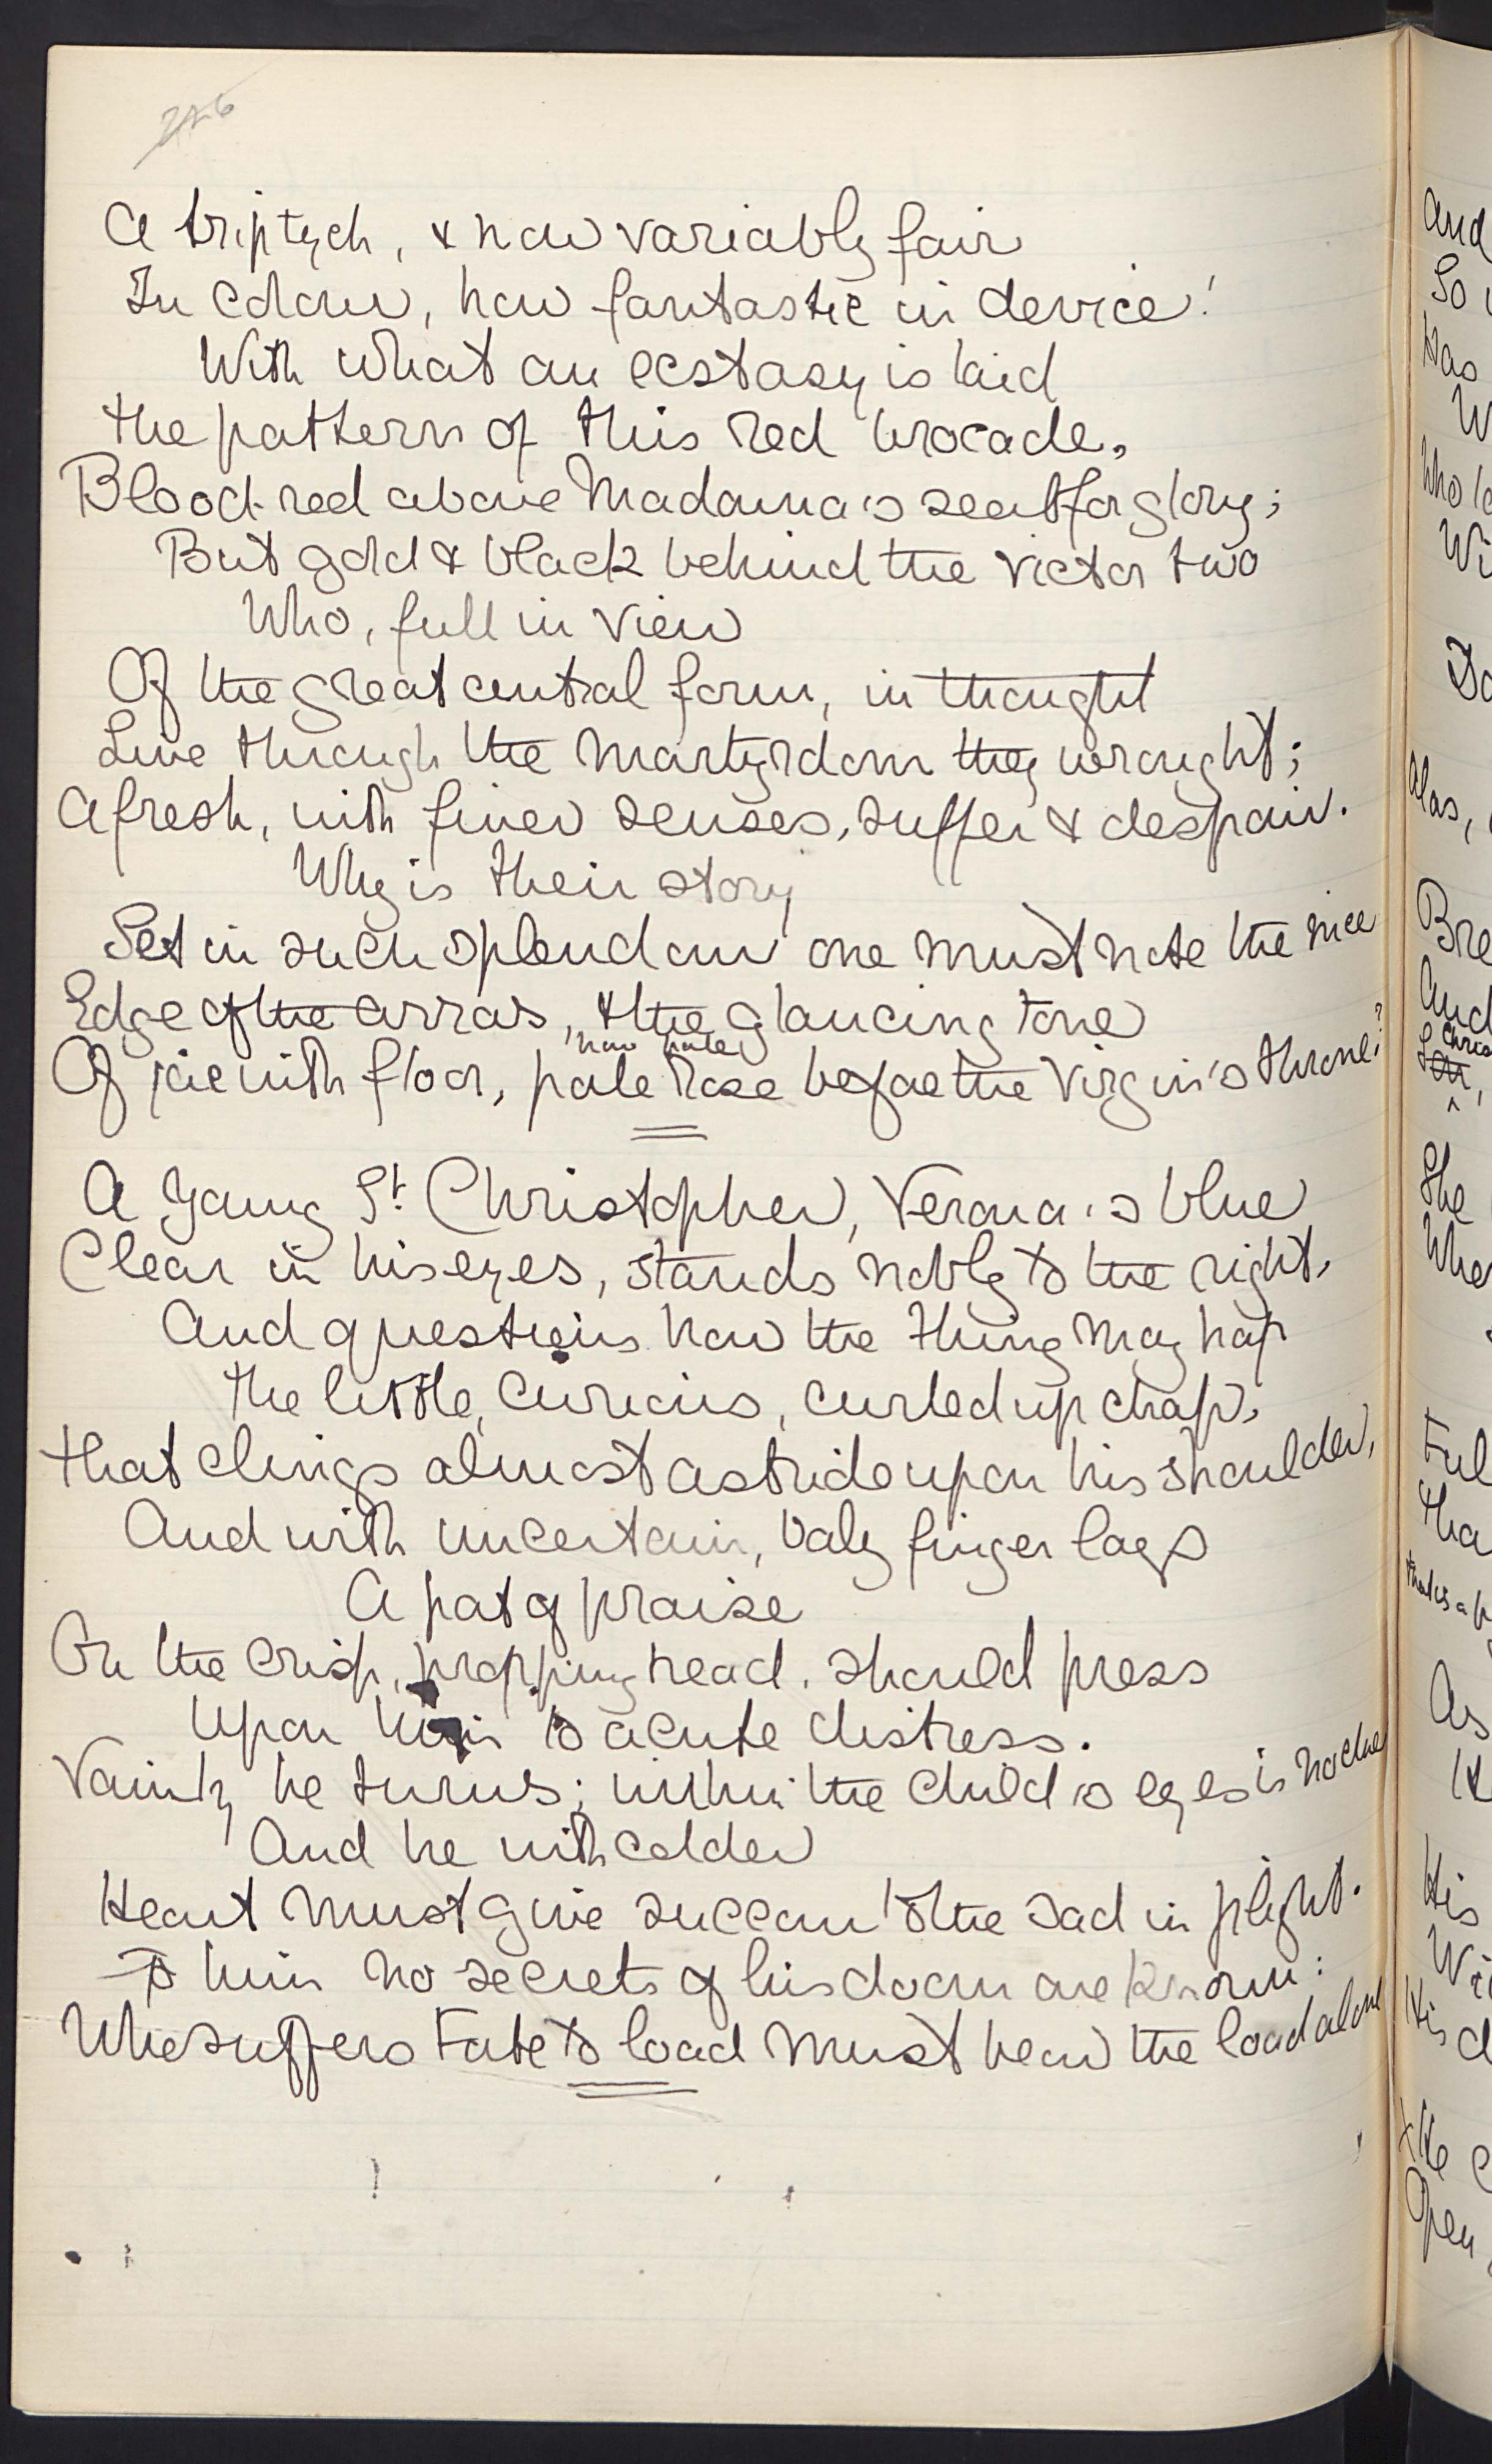 A triptych, & how variably fair
In colour, how fantastic in device!
With what an ecstasy is laid
the pattern of this red brocade,
Blood-red above Madonna's seat for glory;
But gold & black behind the victor two
Who, full in view
Of the great central form, in thought
Live through the martyrdom they wrought;
Afresh, with finer senses, suffer & despair.
Why is their story
Set in such splendour one must note the nice
Edge of the arras, & the glancing tone
how pale
Of jacinth floor, pale rose before the Virgin's throne?
A young St Christopher, Verona's blue
Clear in his eyes, stands nobly to the right,
And questions how the thing may hap
the little, curious, curled up chap,
that clings almost astride upon his shoulder,
And with uncertain, baby finger lays
A pat of praise
On the crisp, propping head, should press
Upon him to acute distress.
Vainly he turns; within the child's eyes is no clue
And he with colder
Heart must give succour to the sad in plight.
To him no secrets of his doom are known:
Who suffers Fate to load must bear the load alone
and
So
Has
W
Who
Wi
Do
Alas,
Bre
And
She
Whe
Ful
tha
that is a
As
His
Wi
His
He
Open